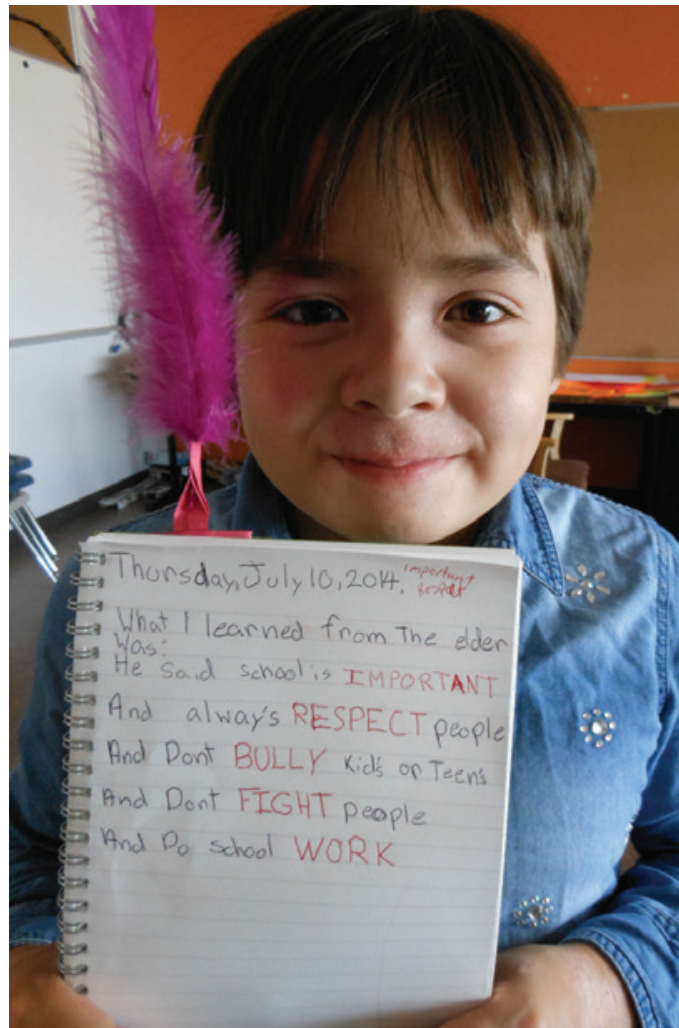 Thursday, July 10, 2014. important
Respect
What I learned from The elder
Was:
He said school is IMPORTANT
And alway's RESPECT people
And Dont BULLY Kid's or Teen's
And Dont FIGHT people
And Do school WORK